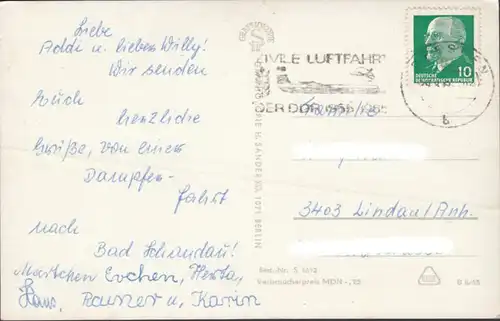 Liebe
Addi u. lieber Willy!
Wir senden
Euch
herzliche
Grüße, von einer
Dampfer-
fahrt
nach
Bad Schandau!
Martchen Evchen, Herta,
Hans, Rainer u. Karin
ZIVILE LUFTFAHRT
DER DDR 1955 1965
DEUTSCHE
DEMOKRATISCHE REPUBLIK
10
b
Familie
3403 Lindau/Anh.
M. SANDER KG, 1071 BERLIN
Best.-Nr. S
Verbraucherpreis MDN -,20